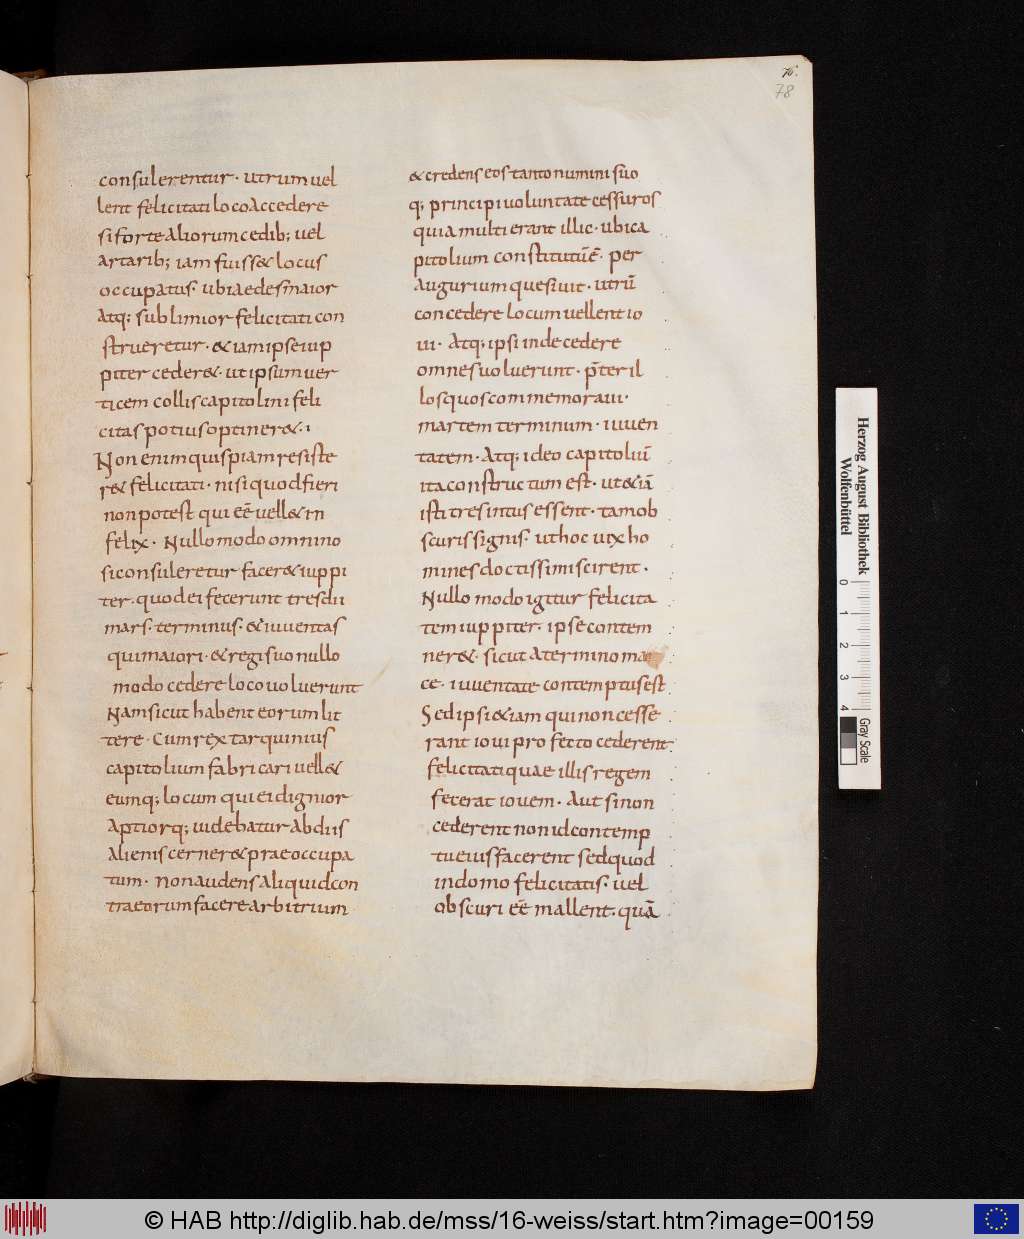 76.
78
consulerentur · utrum uel
lent felicitati loco accedere
si forte aliorum cedib; uel
artarib; iam fuiss& locus
occupatus · ubi aedes maior
atq; sublimior felicitati con
strueretur · & iam ipse iup
piter ceder& · ut ipsum uer
ticem collis capitolini feli
citas potius optiner& ·
Non enim quispiam resiste
r& felicitati · nisi quod fieri
non potest qui eē uell& in
felix · Nullo modo omnino
si consuleretur facer& iuppi
ter · quod ei fecerunt tres dii
mars · terminus · & iuuentas
qui maiori · & regi suo nullo
modo cedere loco uoluerunt
Nam sicut habent eorum lit
tere · Cum rex tarquinius
capitolium fabricari uell&
eumq; locum qui ei dignior
aptiorq; uidebatur ab diis
alienis cerner& praeoccupa
tum · non audens aliquid con
tra eorum facere arbitrium
& credens eos tanto numini suo
q; principi uoluntate cessuros
quia multi erant illic · ubi ca
pitolium constitutū ē · per
augurium quesiuit · utrū
concedere locum uellent io
ui · Atq; ipsi inde cedere
omnes uoluerunt · p̄ter il
los quos commemoraui ·
martem terminum · iuuen
tatem · Atq; ideo capitoliū
ita constructum est · ut &iā
isti tres intus essent · tam ob
scuris signis · ut hoc uix ho
mines doctissimi scirent ·
Nullo modo igitur felicita
tem iuppiter · ipse contem
ner& · sicut a termino mar
te · iuuentate contemptus est
Sed ipsi &iam qui non cesse
rant ioui profecto cederent
felicitati quae illis regem
fecerat iouem · Aut si non
cederent non id contemp
tu eius facerent sed quod
in domo felicitatis · uel
obscuri eē mallent · quā
Herzog August Bibliothek
Wolfenbüttel
0 1 2 3 4
Gray Scale
© HAB http://diglib.hab.de/mss/16-weiss/start.htm?image=00159